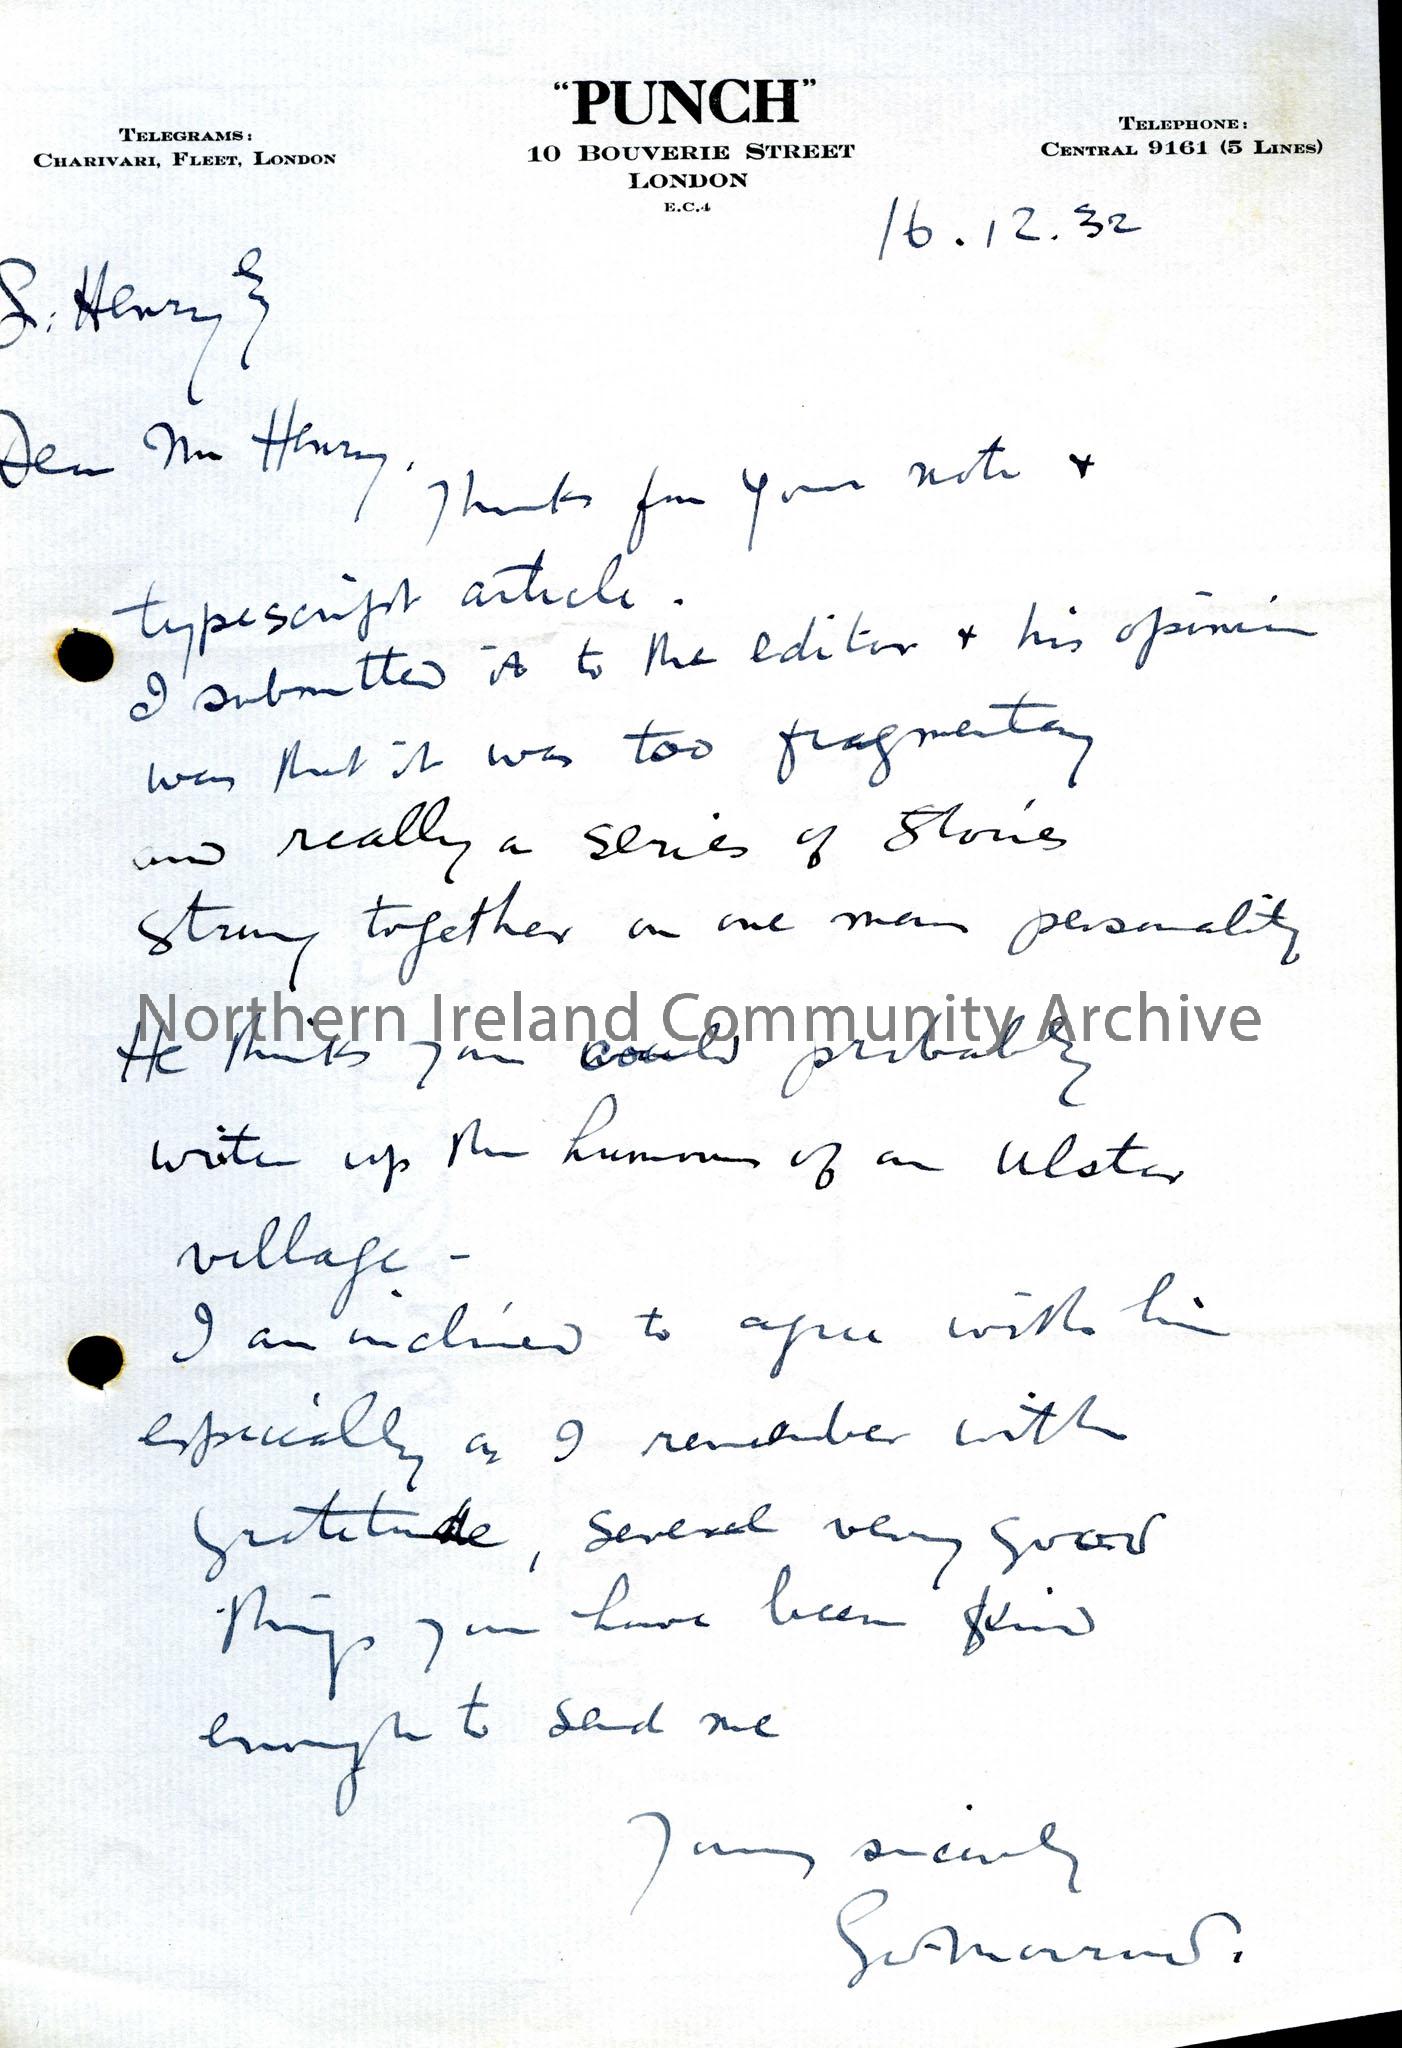 "PUNCH"
10 BOUVERIE STREET
LONDON
E.C.4
TELEGRAMS:
CHARIVARI, FLEET, LONDON
TELEPHONE:
CENTRAL 9161 (5 LINES)
16.12.32
S. Henry Esq
Dear Mr Henry,
Thanks for your note &
typescript article.
I submitted it to the editor & his opinion
was that it was too fragmentary
and really a series of stories
strung together on one mans personality
Northern Ireland Community Archive
He thinks you could probably
write up the humours of an Ulster
village -
I am inclined to agree with him
especially as I remember with
gratitude, several very good
things you have been kind
enough to send me
Yours sincerely